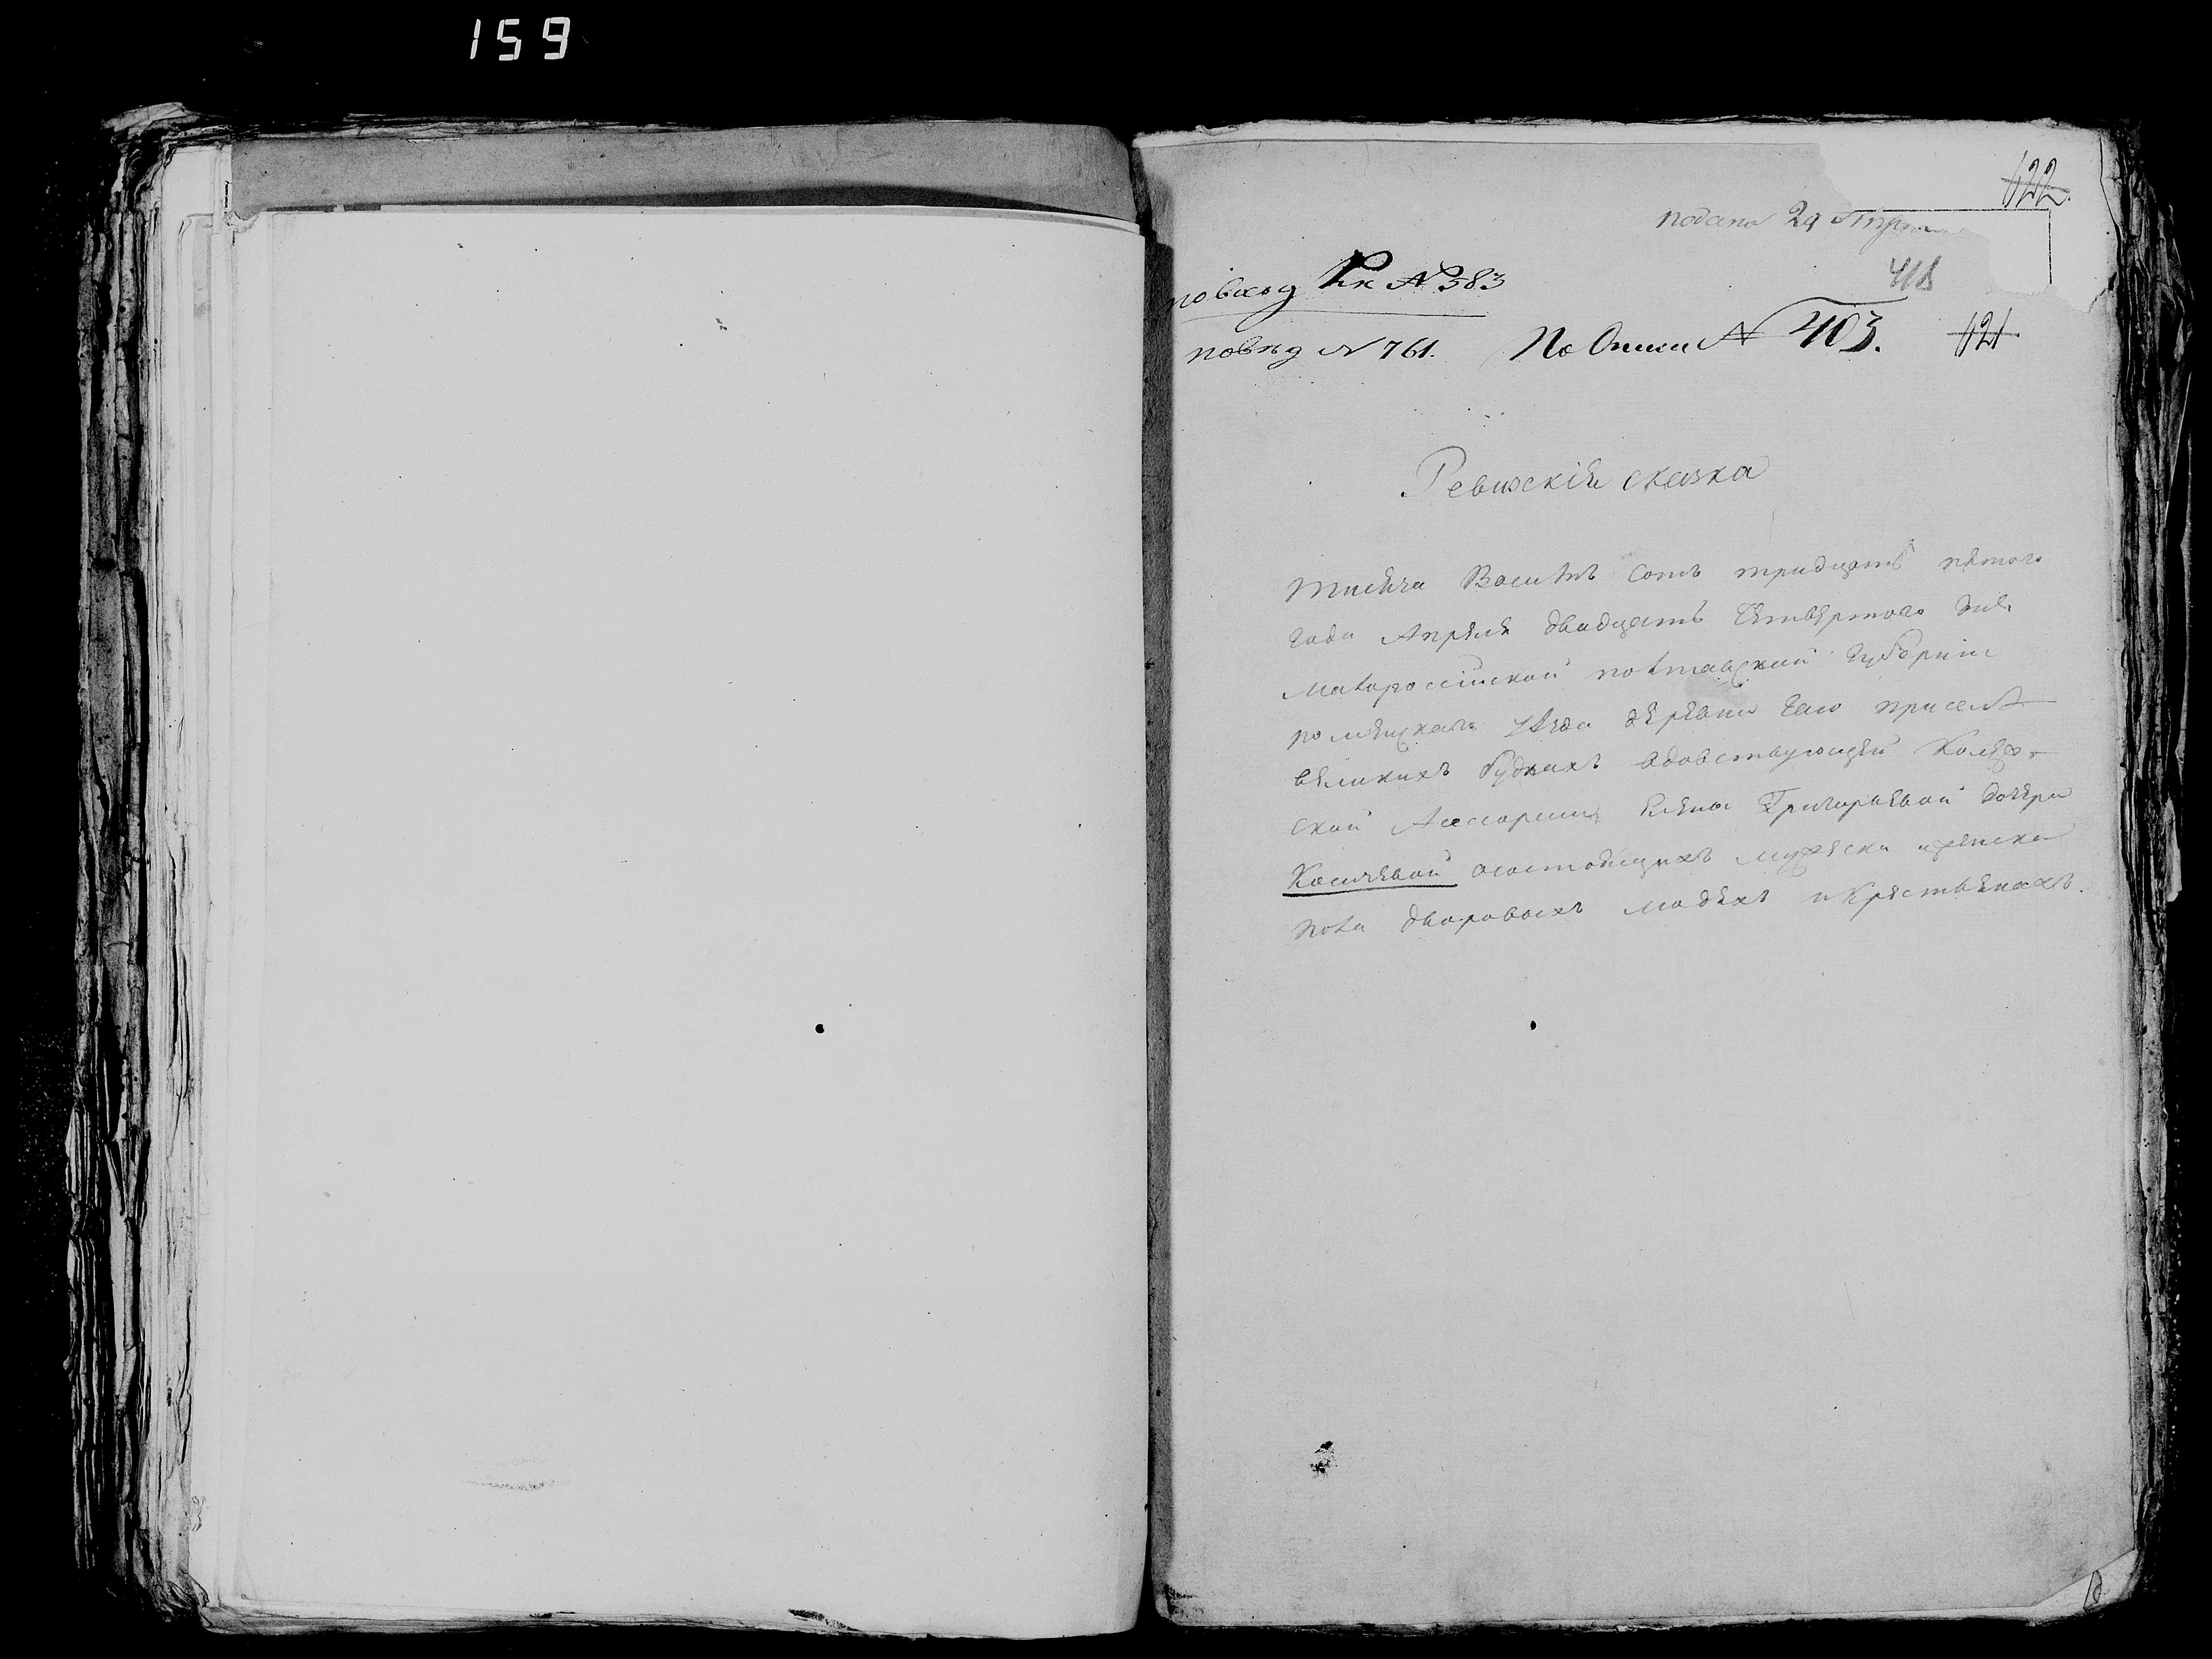 159
622
подано 24 Апрел
418
по вход Рк № 383
по вхд № 761. По Описи № 403. 621
Ревизскія сказка
тисяча Восимъ Сотъ тридцать пятого
года Апреля двадцать Четвертого дня
Малоросійской полтавской Губерніи
роменскаго уезда деревни Ею при селе
великихъ Будкахъ вдовствующей Колеж-
ской Асессорши Елены Григорьевой дочери
Косичевой осостоящихъ мужеска иженска
пола дворовыхъ людехъ икрестьянахъ.